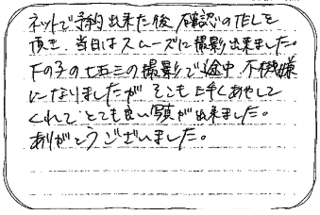 ネットで予約出来た後、確認のTELを
頂き、当日はスムーズに撮影出来ました。
下の子の七五三の撮影で途中不機嫌
になりましたが そこも上手くあやして
くれて、とても良い写真が出来ました。
ありがとうございました。